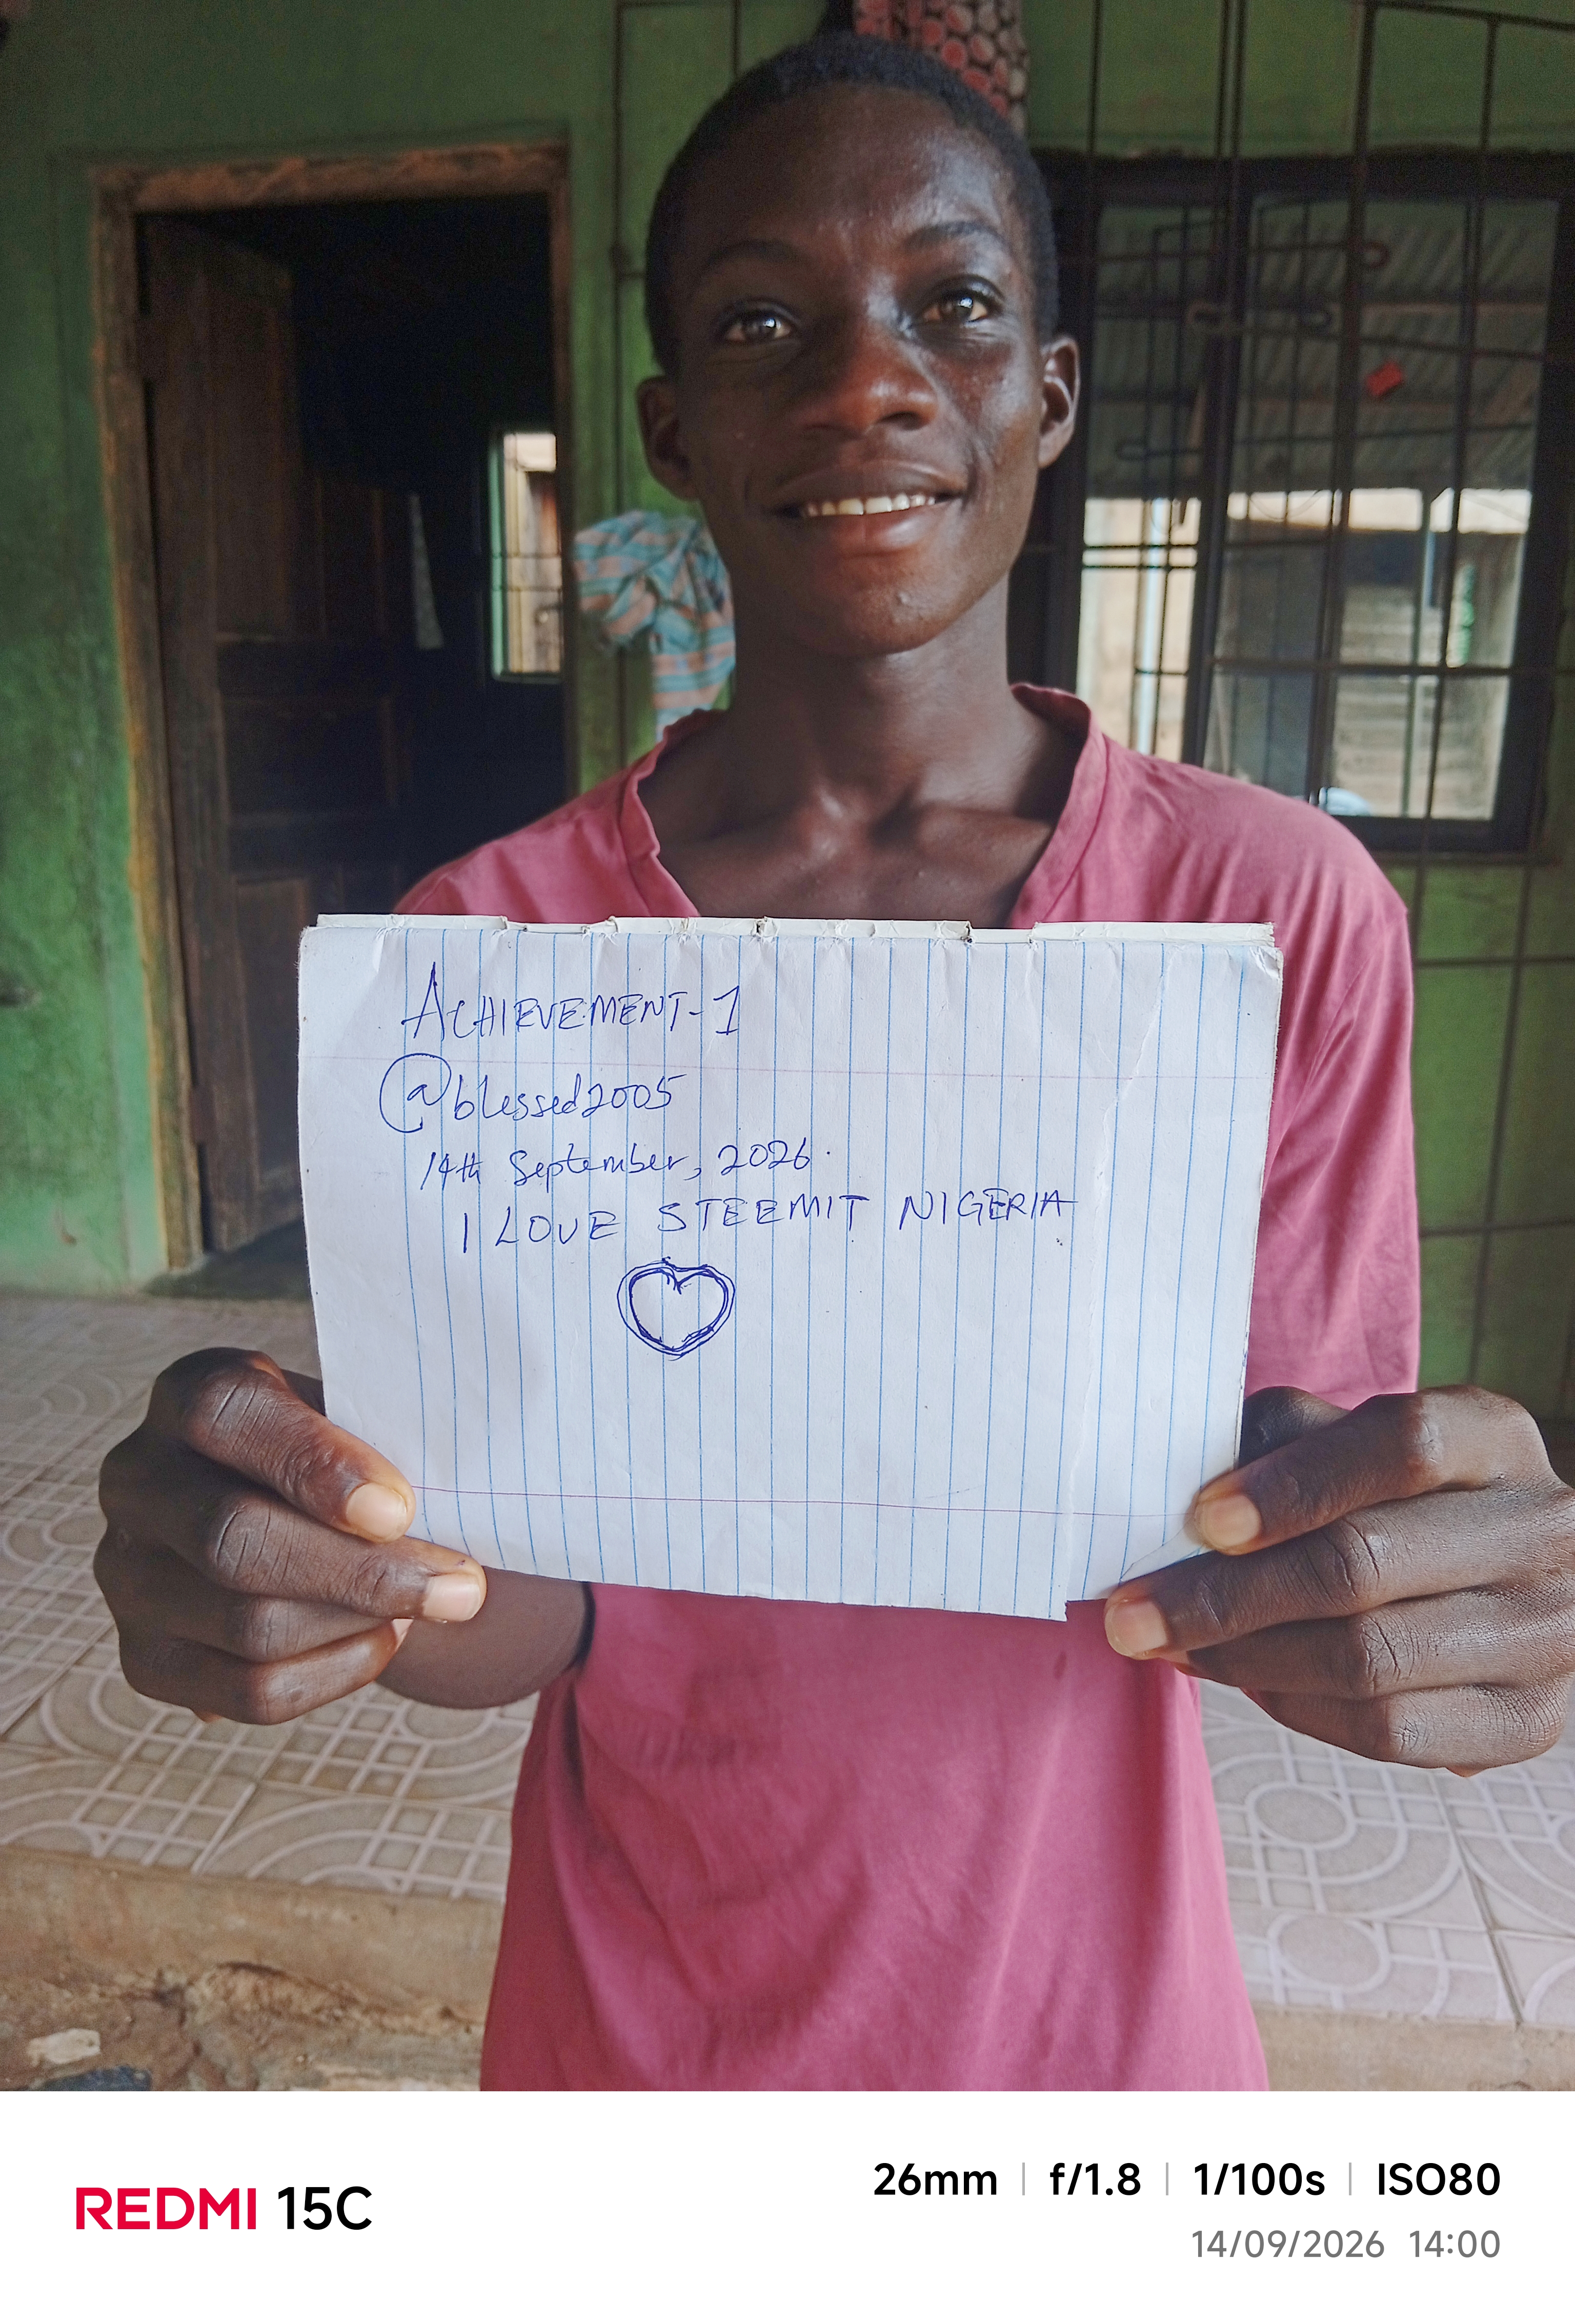 ACHIEVEMENT-1
@blessed2005
14th September, 2026.
I LOVE STEEMIT NIGERIA
REDMI 15C
26mm | f/1.8 | 1/100s | ISO80
14/09/2026 14:00